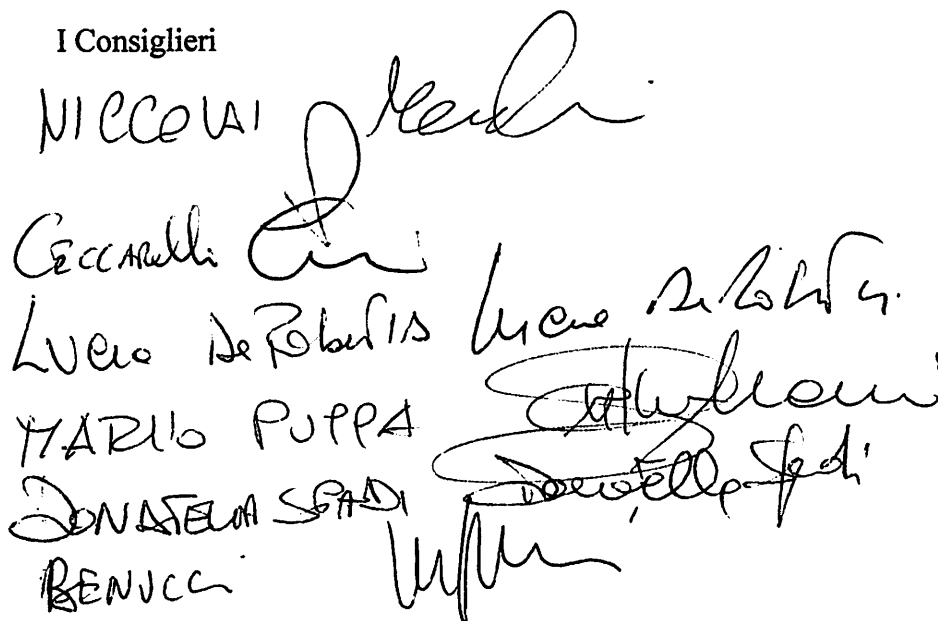 I Consiglieri
NICCOLAI
CECCARELLI
LUCIO De Robertis Lucio De Robertis
MARIO PUPPA
DONATELLA SPADI Donatella Spadi
BENUCCI